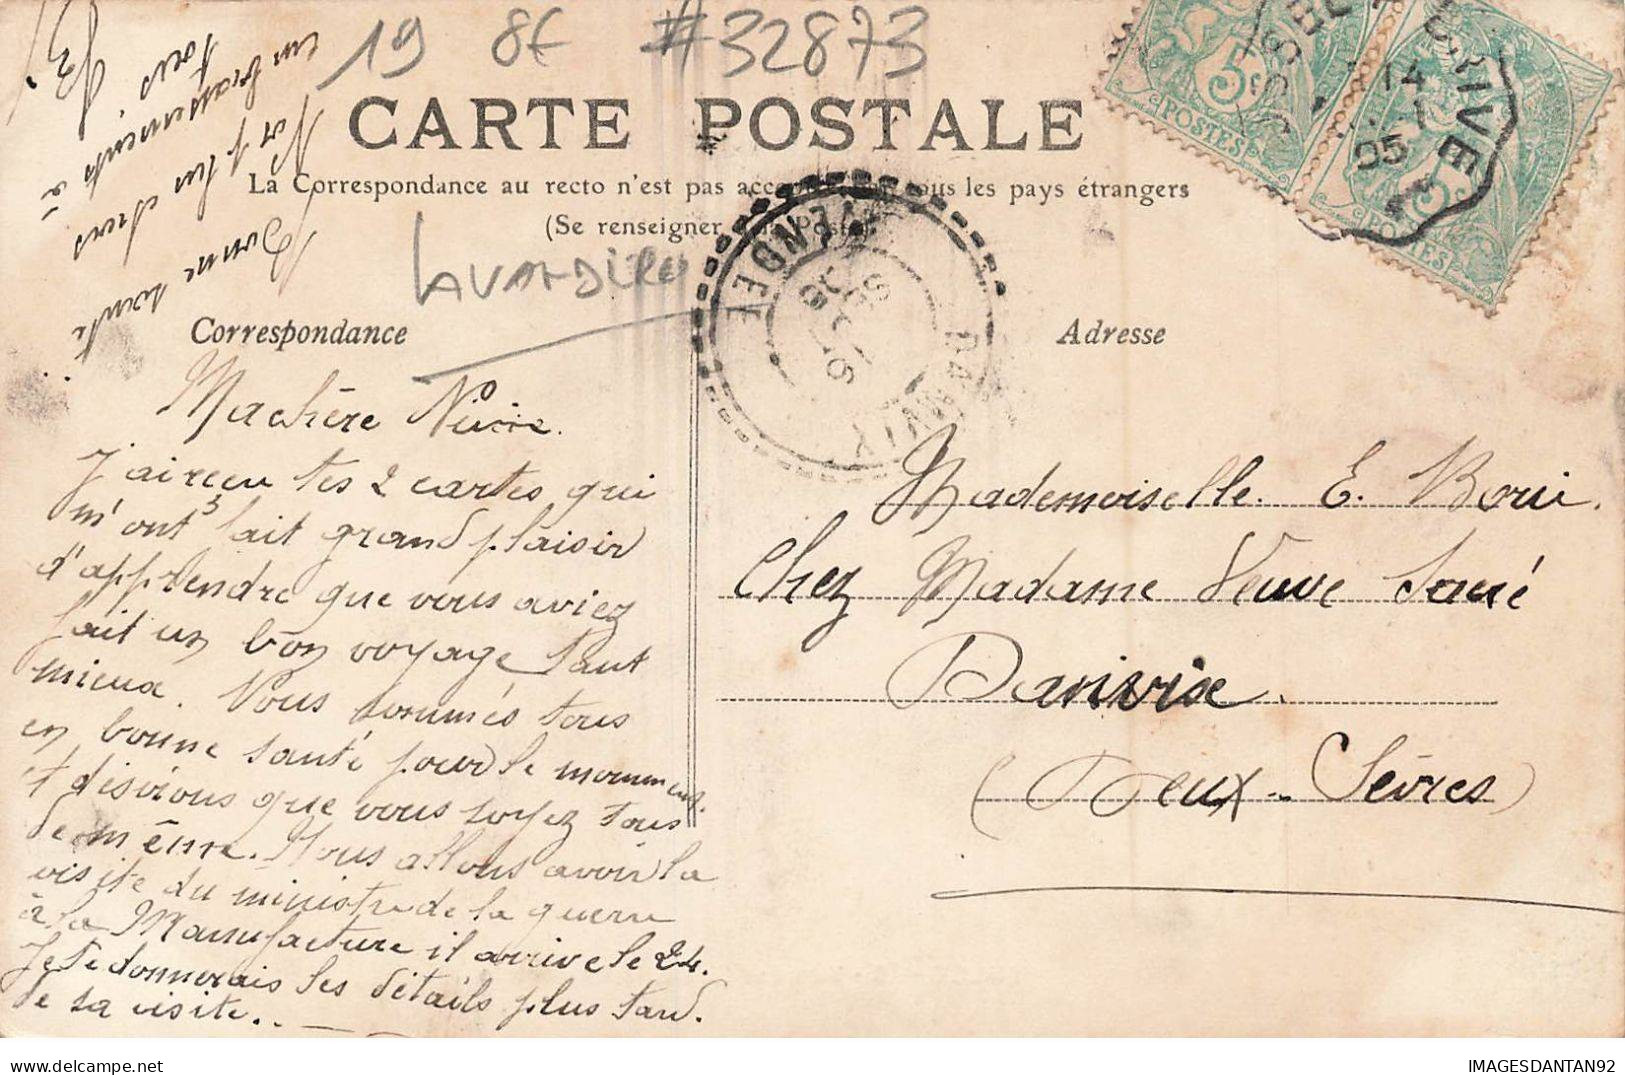 19 8€ #32873
CARTE POSTALE
La Correspondance au recto n'est pas acceptée par tous les pays étrangers
(Se renseigner à la Poste)
LAVANDIÈRE
Correspondance
Adresse
Ma chère
J'ai reçu tes 2 cartes qui
m'ont fait grand plaisir
d'apprendre que vous aviez
fait un bon voyage tant
mieux. Vous sommes tous
en bonne santé pour le moment
et désirons que vous soyez tous
de même. Nous allons avoir la
visite du ministre de la guerre
à la Manufacture il arrive le 24.
Je te donnerais les détails plus tard
de sa visite.
Donne toute
Nos plus chers
embrassements à
tous.
Mademoiselle E.
Chez Madame Veuve
Danvix
(Deux-Sèvres)
VENDÉE
DAMVIX
16
BRIVE
14
05
5c
POSTES
5c
POSTES
IMAGESDANTAN92